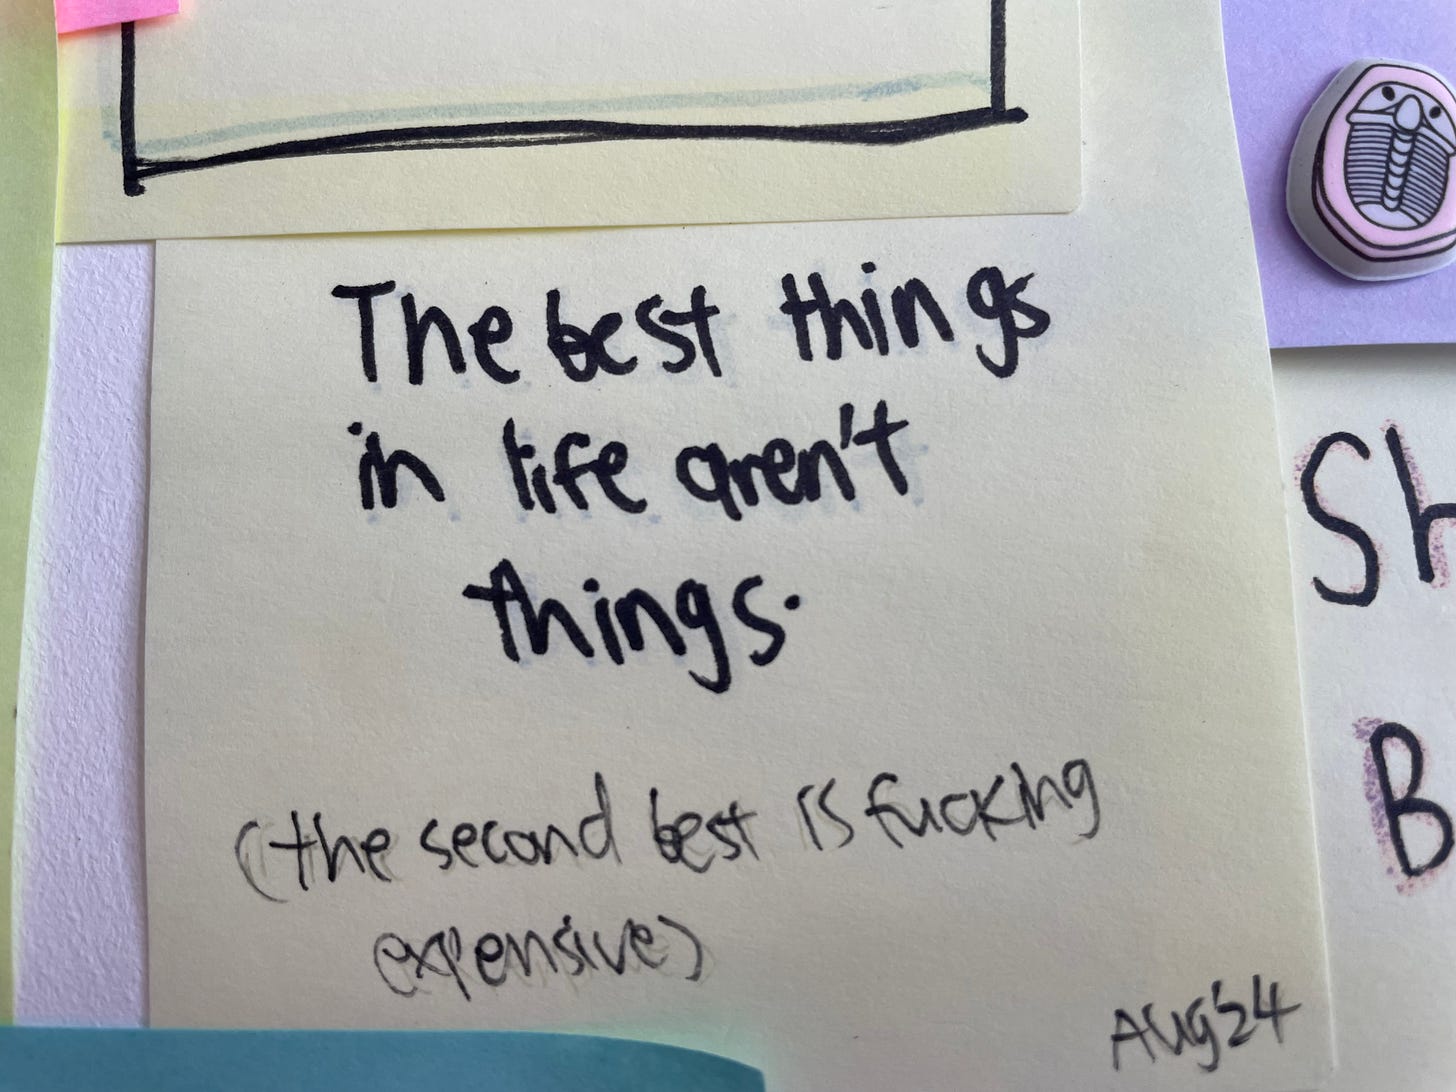 The best things
in life aren't
things.
(the second best is fucking
expensive)
Aug'24
Sh
B